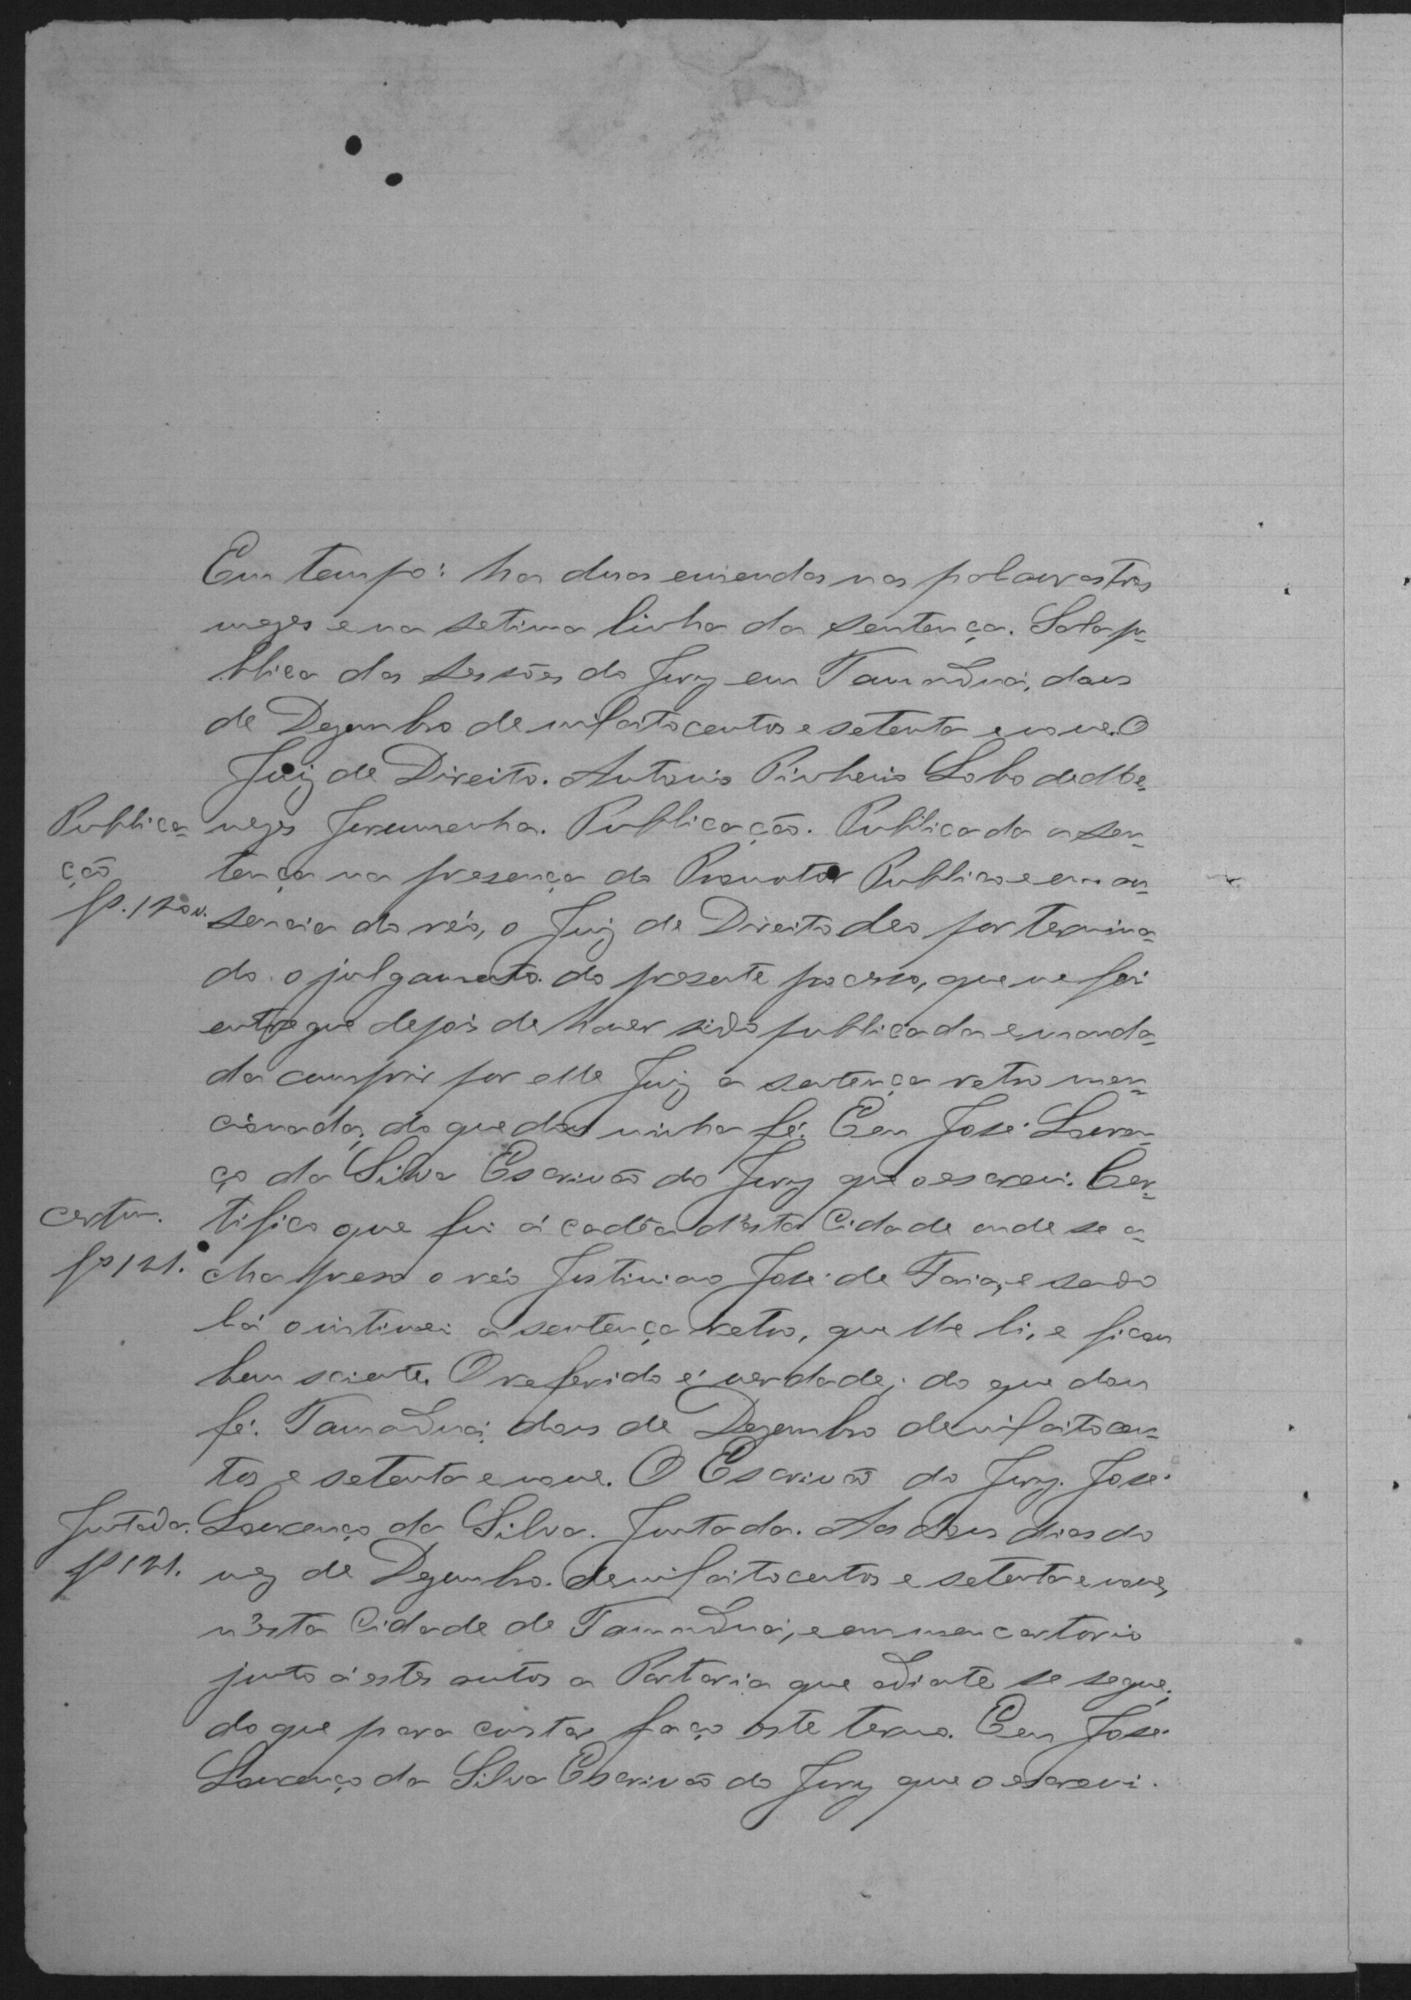 Em tempo: ha duas emendas nas palavras tres
mezes e na setima linha da sentença. Sala pu-
blica das sessões do Jury em Tamanduá, dous
de Dezembro de mil oitocentos e setenta e nove. O
Juiz de Direito. Antonio Pinheiro Lobo de Me-
Publica- nezes Jurumenha. Publicação. Publicada a sen-
ção tença na presença do Promotor Publico e em au-
fs. 120 v. sencia do réo, o Juiz de Direito deo por termina-
do o julgamento do presente processo, que me foi
entregue depois de haver sido publicada e manda-
da cumprir por elle Juiz a sentença retro men-
cionada, do que dou minha fé. Eu José Louren-
ço da Silva Escrivão do Jury que o escrevi. Cer-
certam. tifico que fui á cadêa d'esta Cidade onde se a-
fs 121. cha preso o réo Justiniano José de Faria, e sendo
lá o intimei a sentença retro, que lhe li, e ficou
bem sciente. O referido é verdade; do que dou
fé. Tamanduá, dous de Dezembro de mil oitocen-
tos e setenta e nove. O Escrivão do Jury. José
Juntada. Lourenço da Silva. Juntada. Aos dous dias do
fs 121. mez de Dezembro de mil oitocentos e setenta e nove,
n'esta Cidade de Tamanduá, e em meu cartorio
junto á estes autos a Portaria que adiante se segue;
do que para constar faço este termo. Eu José
Lourenço da Silva Escrivão do Jury que o escrevi.